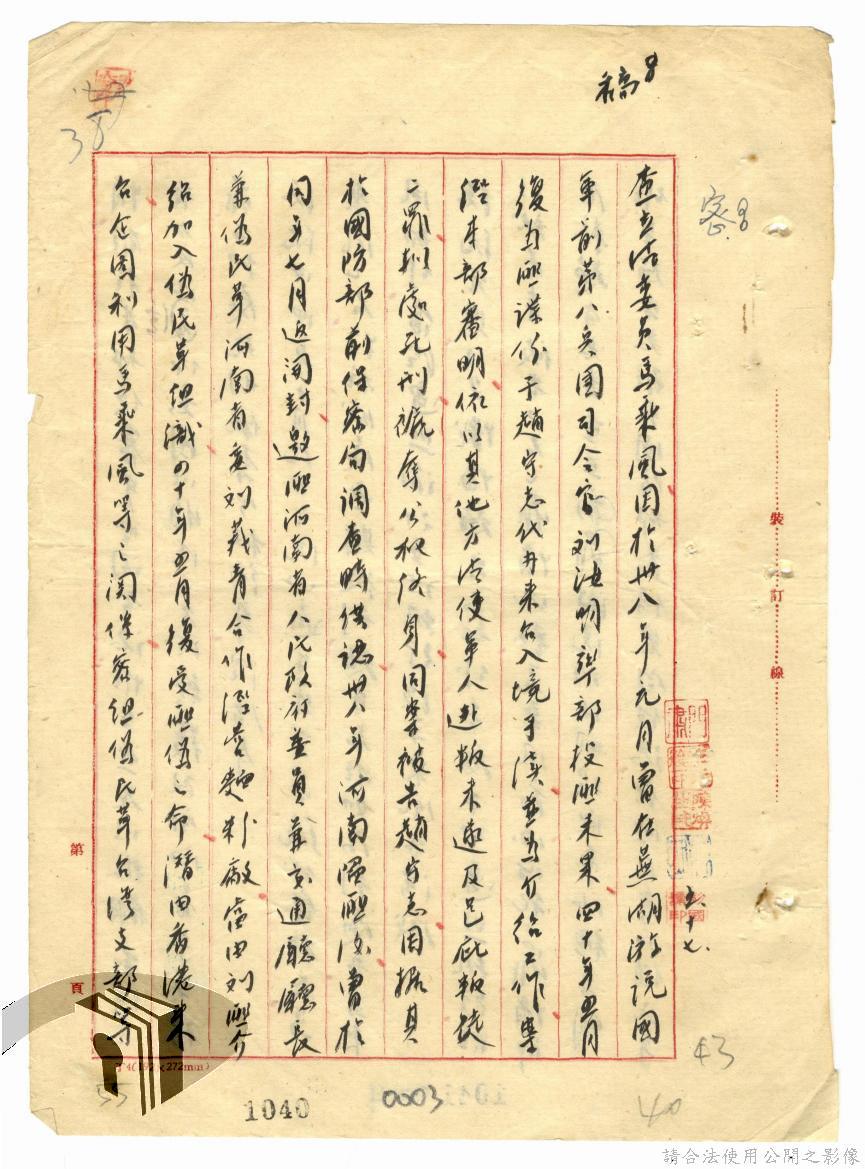 稿
密
查立法委員馬乘風因於卅八年元月曾在蕪湖游說國
軍前第八兵團司令官刘汝明率部投匪未果四十年五月
復為匪諜份子趙守志代办来台入境手續並為介紹工作案
經本部審明依以其他方法使軍人逃叛未遂及包庇叛徒
二罪判處死刑褫奪公权終身同案被告趙守志因據其
於國防部前保密局調查時供認卅八年河南陷匪後曾於
同年七月返開封邀匪河南省人民政府委員兼交通廳廳長
兼偽民革河南省委刘義青合作經营麵粉廠當由刘匪介
紹加入偽民革組織四十年五月復受匪偽之命潛由香港来
台企圖利用馬乘風等之関係密組偽民革台湾支部等
裝訂線
第頁
五十七
(192×272mm)
38
43
40
55
1040
0003
請合法使用公開之影像